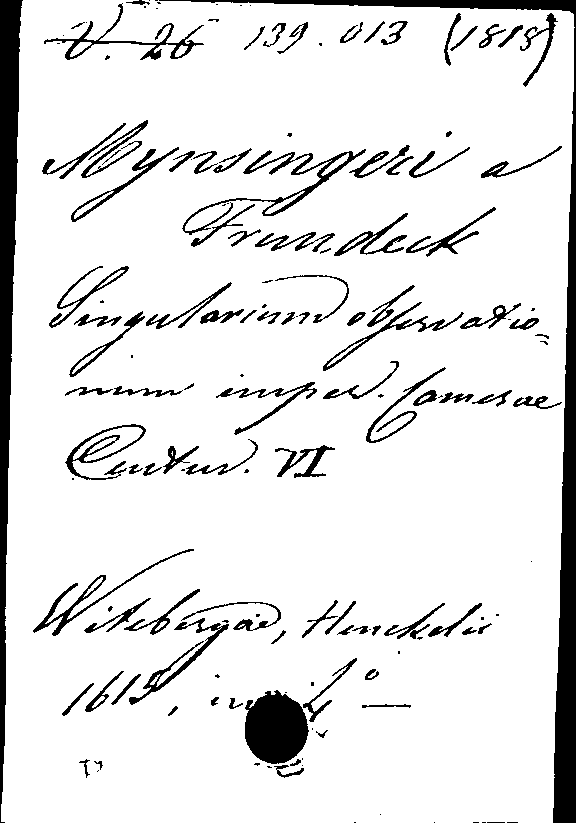 V. 26 139.013 (1818)
Mynsingeri a
Frundeck
Singularium observatio=
num imper. Camerae
Centur. VI
Witebergae, Henckelii
1615, in 4°